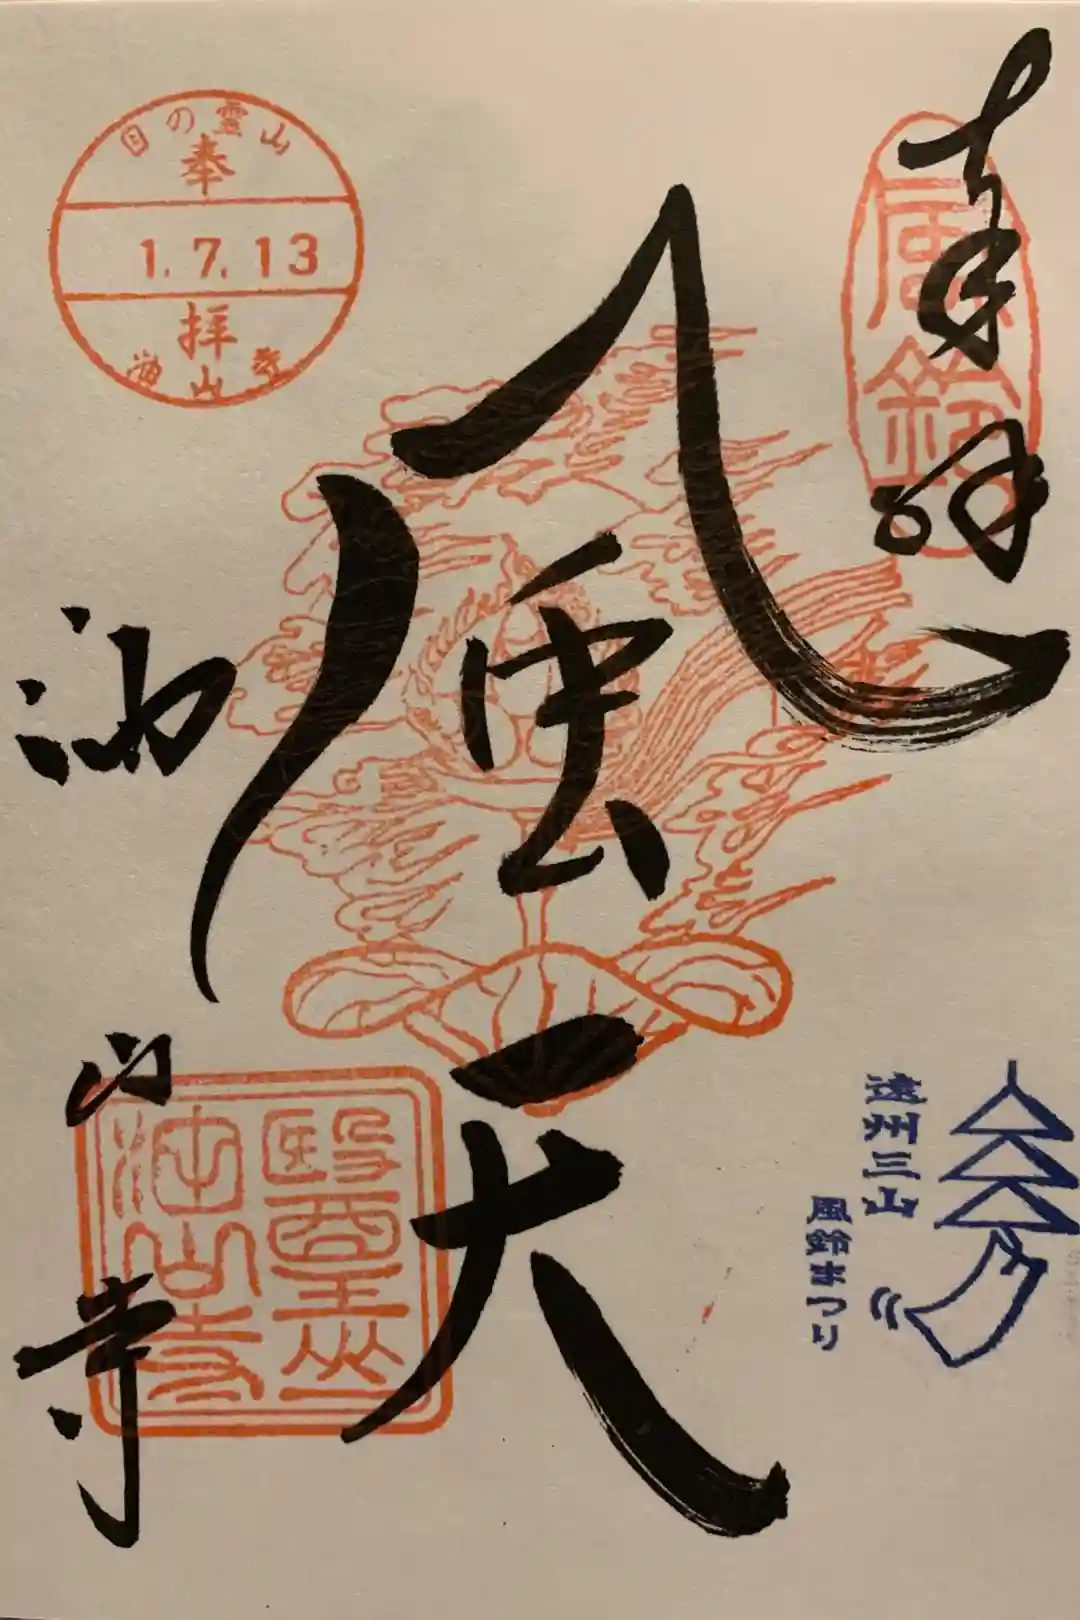 奉拝
風鈴
風天
目の霊山
奉
1.7.13
拝
油山寺
油山寺
醫王山
油山寺
遠州三山
風鈴まつり